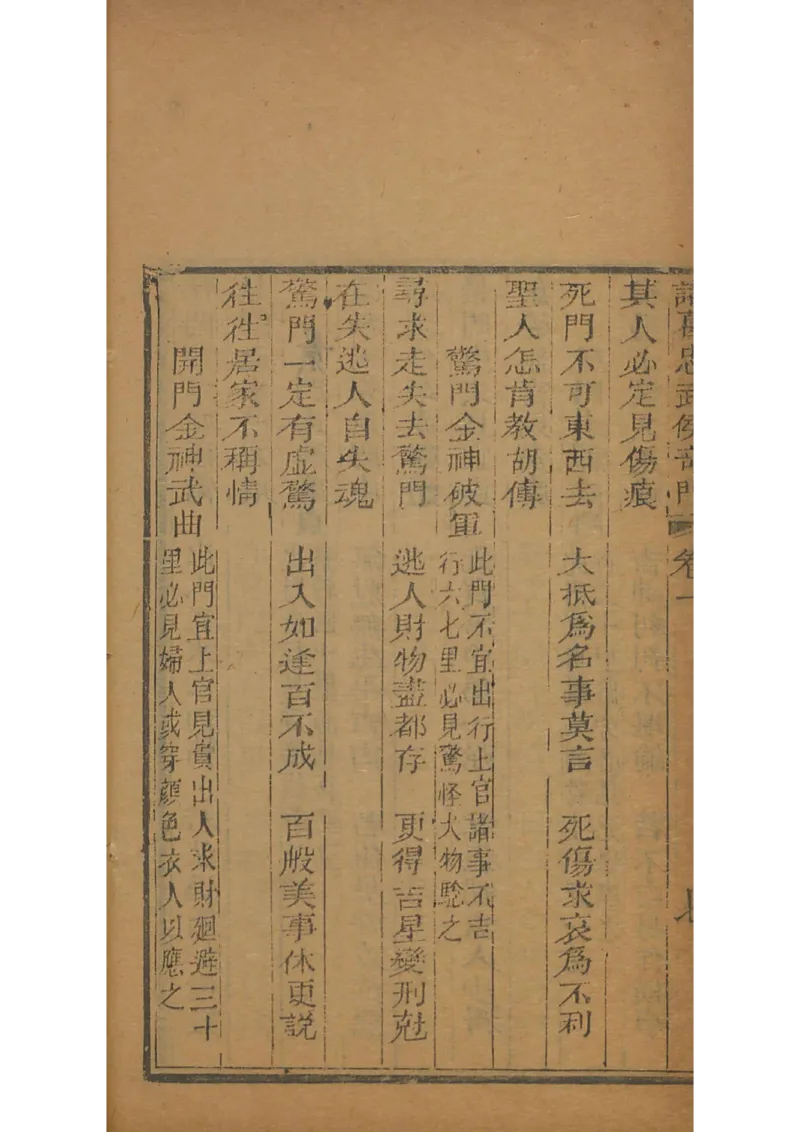 諸葛忠武侯奇門 卷一 七
其人必定見傷痕
死門不可東西去 大抵爲名事莫言 死傷求哀爲不利
聖人怎肯教胡傳
驚門金神破軍 此門不宜出行上官諸事不吉
行六七里必見驚怪犬物駝之
尋求走失去驚門 逃人財物盡都存 更得吉星變刑尅
在失逃人自失魂
驚門一定有虛驚 出入如逢百不成 百般美事休更説
往往居家不稱情
開門金神武曲 此門宜上官見貴出人求財廻避三十
里必見婦人或穿顔色衣人以應之